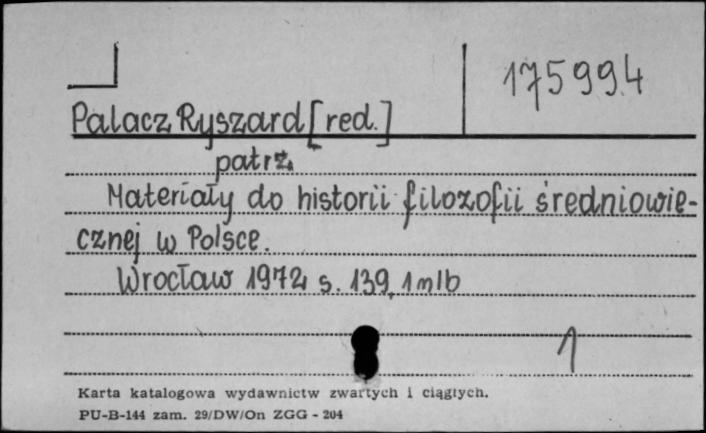 175994
Palacz Ryszard [red.]
patrz
Materiały do historii filozofii średniowie-
cznej w Polsce.
Wrocław 1972 s. 139, 1 nlb
1
Karta katalogowa wydawnictw zwartych i ciągłych.
PU-B-144 zam. 29/DW/On ZGG - 204